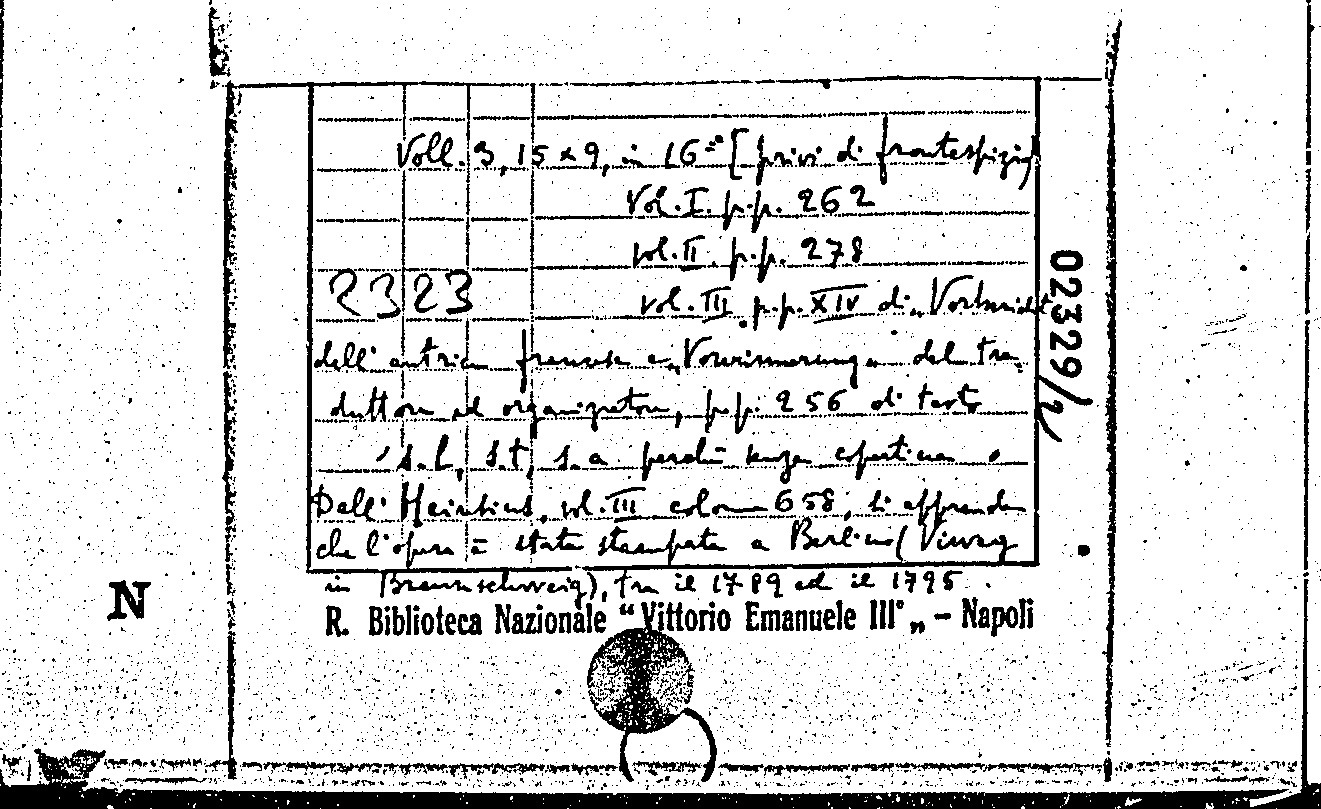 Voll. 3, 15 x 9, in 16° [privi di frontespizio]
Vol. I. p.p. 262
vol. II. p.p. 278
2323
vol. III. p.p. XIV di „Vorbericht"
dell' autrice francese e „Vorerinnerung" del tra
duttore ed organizzatore, p.p. 256 di testo
s.l., s.t., s.a perché senza copertina.
Dall' Heinsius, vol. III colonna 658, si apprende
che l'opera è stata stampata a Berlino (Vieweg
in Braunschweig), fra il 1789 ed il 1795.
R. Biblioteca Nazionale “Vittorio Emanuele III„ – Napoli
N
02329/2